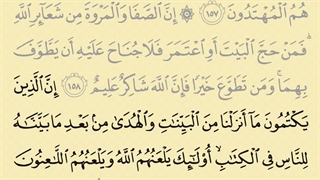 هُمُ ٱلْمُهْتَدُونَ ١٥٧ ۞ إِنَّ ٱلصَّفَا وَٱلْمَرْوَةَ مِن شَعَآئِرِ ٱللَّهِ
فَمَنْ حَجَّ ٱلْبَيْتَ أَوِ ٱعْتَمَرَ فَلَا جُنَاحَ عَلَيْهِ أَن يَطَّوَّفَ
بِهِمَا ۚ وَمَن تَطَوَّعَ خَيْرًا فَإِنَّ ٱللَّهَ شَاكِرٌ عَلِيمٌ ١٥٨ إِنَّ ٱلَّذِينَ
يَكْتُمُونَ مَآ أَنزَلْنَا مِنَ ٱلْبَيِّنَٰتِ وَٱلْهُدَىٰ مِنۢ بَعْدِ مَا بَيَّنَّٰهُ
لِلنَّاسِ فِى ٱلْكِتَٰبِ ۙ أُو۟لَٰٓئِكَ يَلْعَنُهُمُ ٱللَّهُ وَيَلْعَنُهُمُ ٱللَّٰعِنُونَ